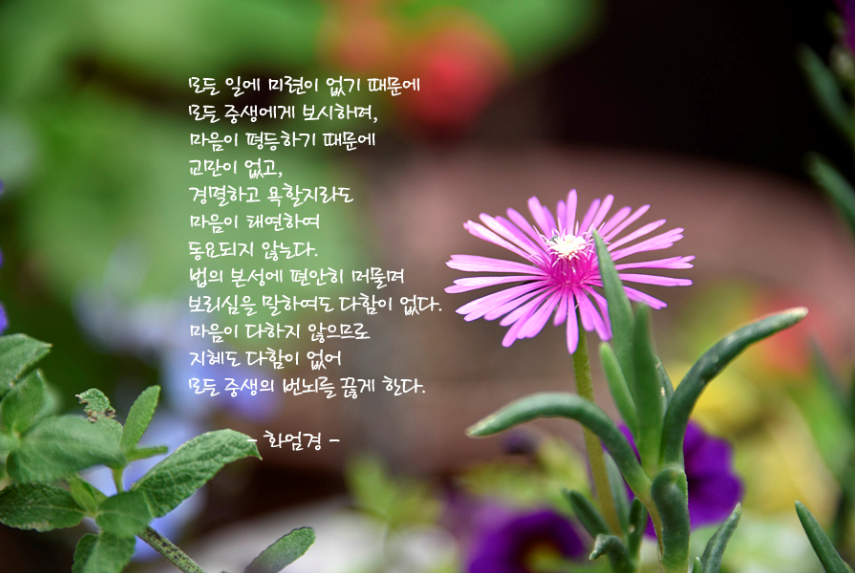 모든 일에 미련이 없기 때문에
모든 중생에게 보시하며,
마음이 평등하기 때문에
교만이 없고,
경멸하고 욕할지라도
마음이 태연하여
동요되지 않는다.
법의 본성에 편안히 머물며
보리심을 말하여도 다함이 없다.
마음이 다하지 않으므로
지혜도 다함이 없어
모든 중생의 번뇌를 끊게 한다.
- 화엄경 -